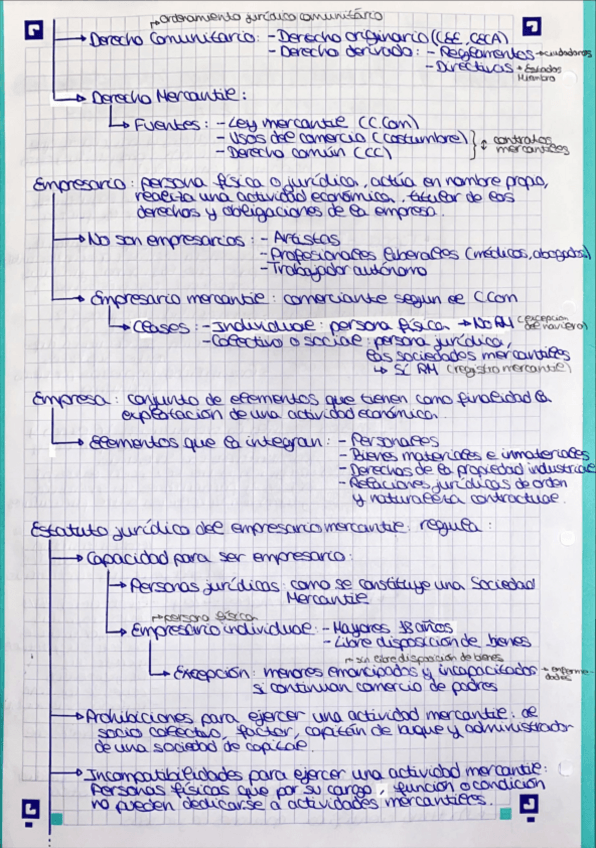 ordenamiento jurídico comunitário
Derecho Comunitario: - Derecho originario (CEE, CECA)
- Derecho derivado: - Reglamentos → ciudadanos
- Directivas → Estados
Miembro
Derecho Mercantil:
Fuentes: - Ley mercantil (C.Com)
- Usos del comercio (costumbre)
- Derecho común (CC)
contratos
mercantiles
Empresario: persona física o jurídica, actúa en nombre propio,
realiza una actividad económica, titular de los
derechos y obligaciones de la empresa.
No son empresarios: - Artistas
- Profesionales liberales (médicos, abogados)
- Trabajador autónomo
Empresario mercantil: comerciante según el CCom
Clases: - Individual: persona física → No RM (excepción
de naviero)
- Colectivo o social: persona jurídica,
las sociedades mercantiles
↳ SÍ RM (registro mercantil)
Empresa: conjunto de elementos que tienen como finalidad la
explotación de una actividad económica.
Elementos que la integran: - Personales
- Bienes materiales e inmateriales
- Derechos de la propiedad industrial
- Relaciones jurídicas de orden
y naturaleza contractual.
Estatuto jurídico del empresario mercantil: regula:
Capacidad para ser empresario:
Personas jurídicas: como se constituye una Sociedad
Mercantil
persona física
Empresario individual: - Mayores 18 años
- Libre disposición de bienes
sin libre disposición de bienes
Excepción: menores emancipados y incapacitados → enferme-
dades
si continuan comercio de padres
Prohibiciones para ejercer una actividad mercantil: al
socio colectivo, factor, capitán de buque y administrador
de una sociedad de capital.
Incompatibilidades para ejercer una actividad mercantil:
Personas físicas que por su cargo, función o condición
no pueden dedicarse a actividades mercantiles.